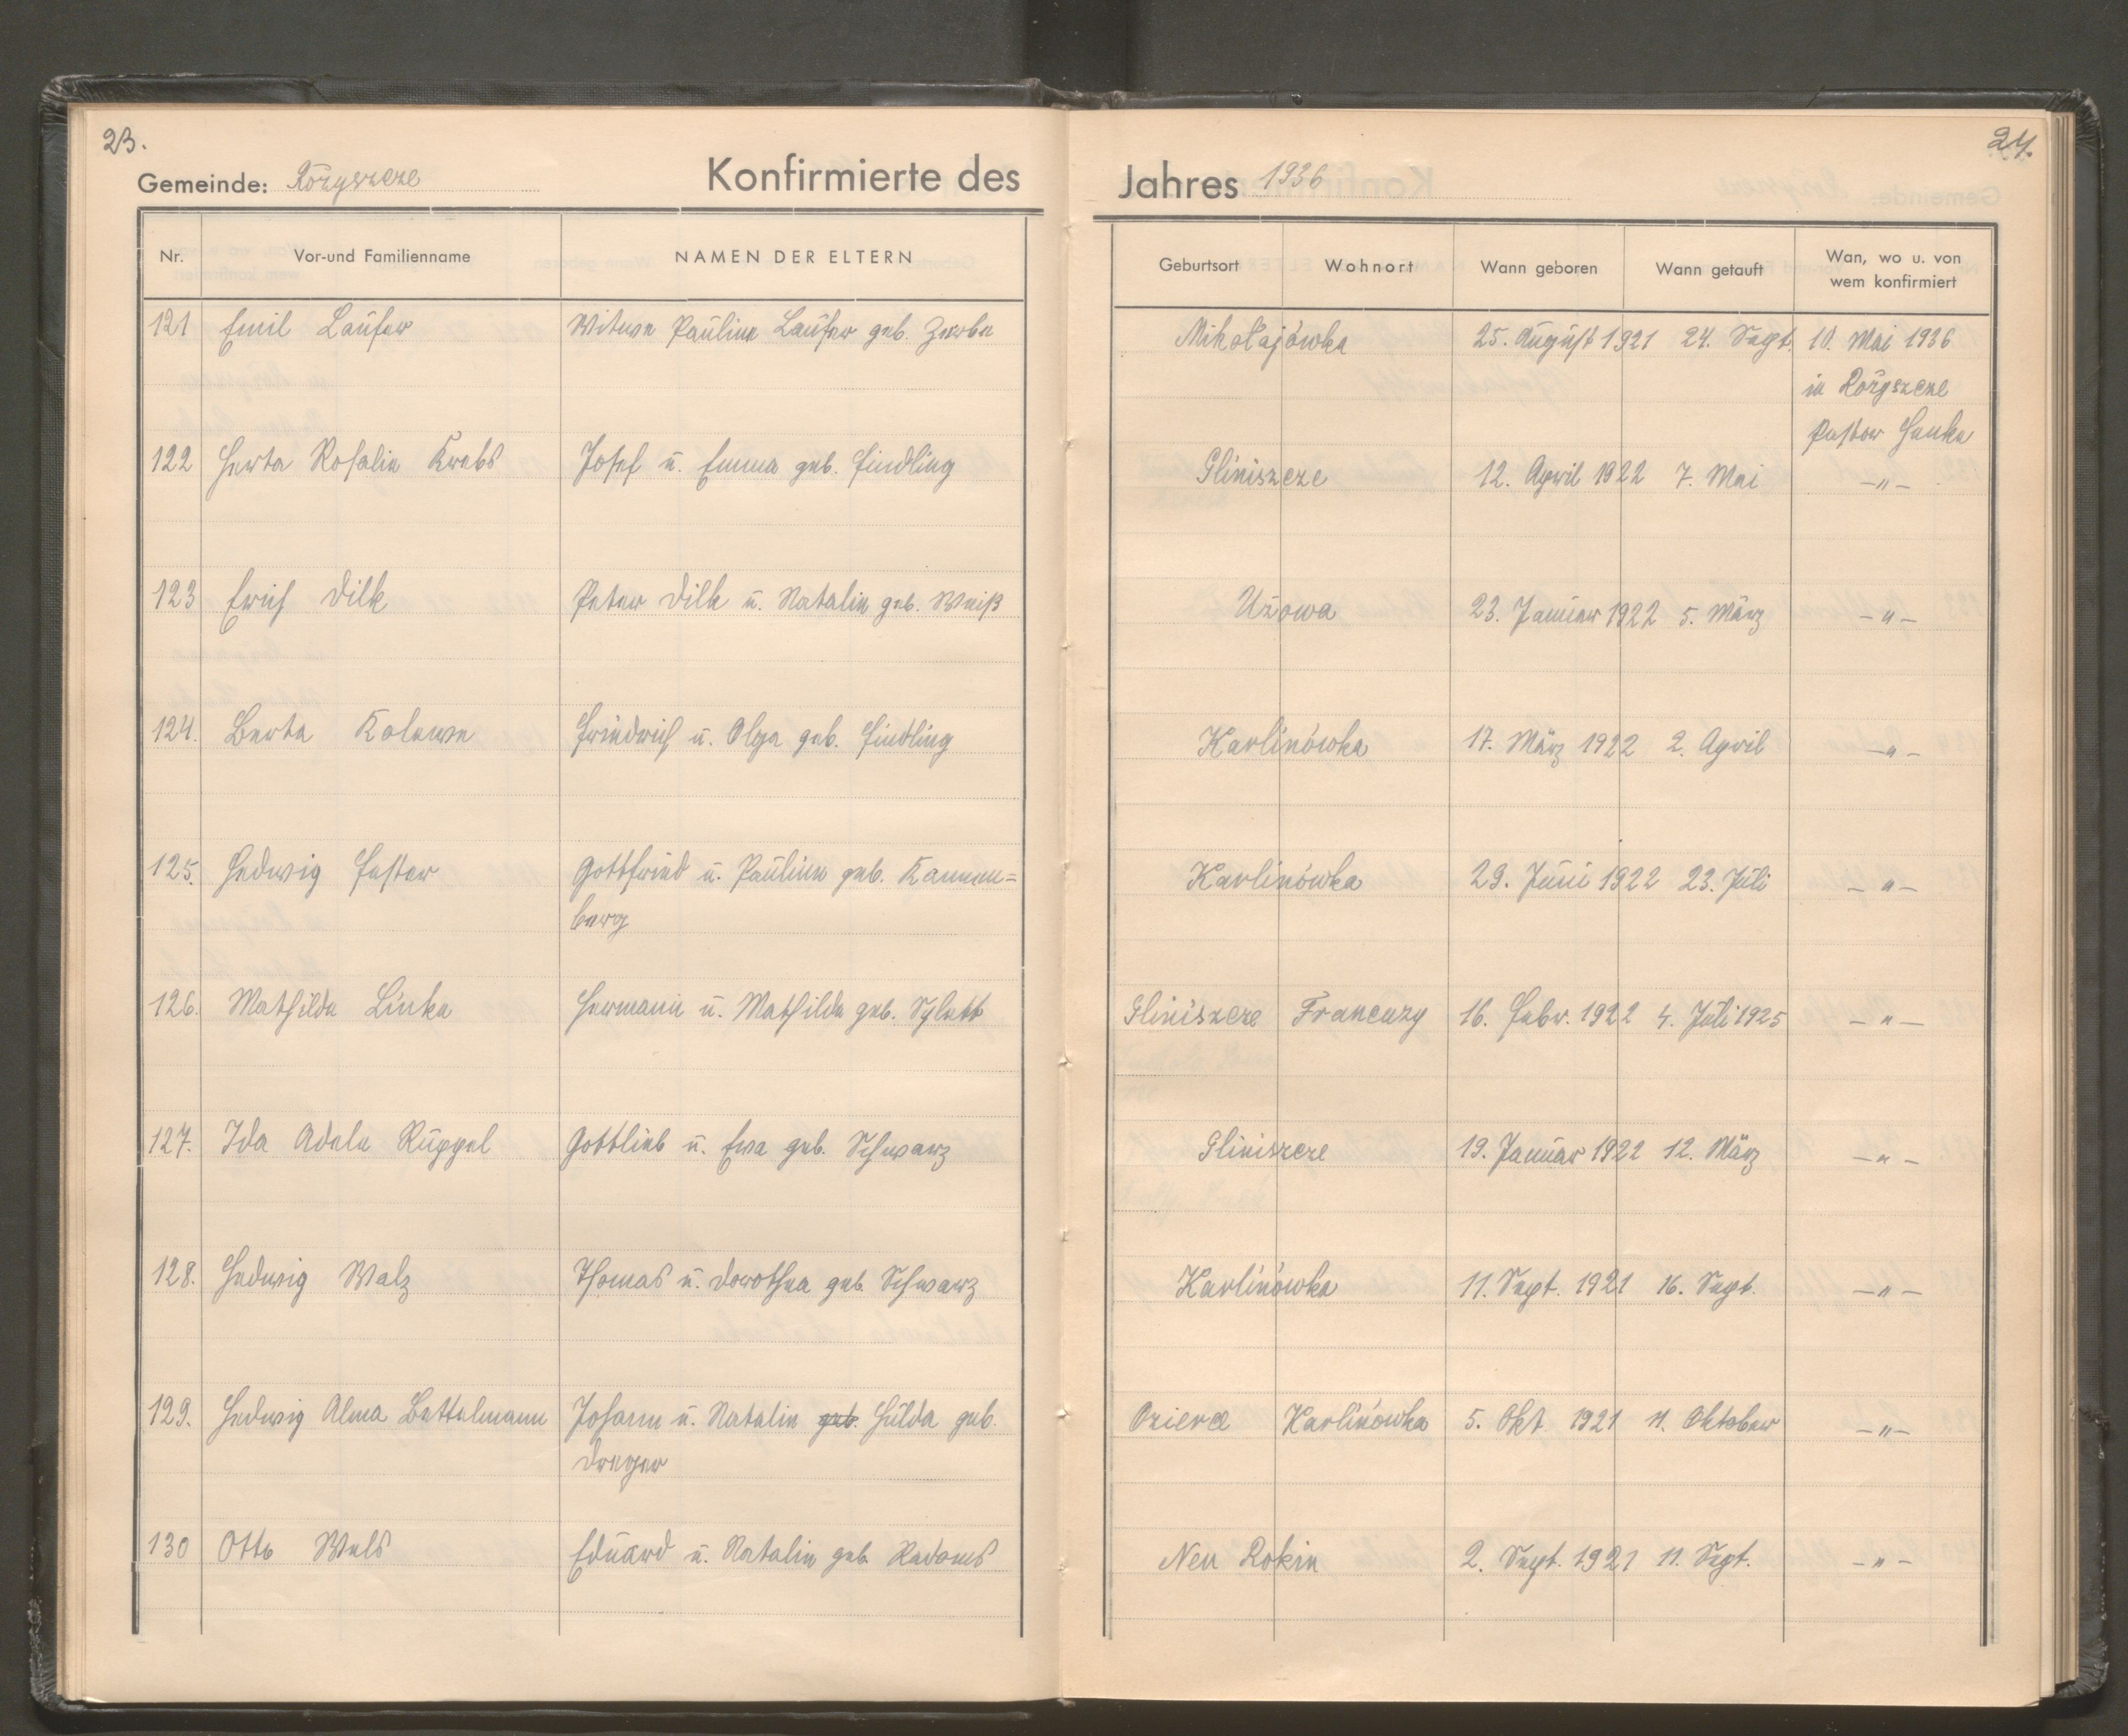 23.
Gemeinde: Rożyszcze
Konfirmierte des
Nr. Vor-und Familienname NAMEN DER ELTERN
121 Emil Laufer Witwe Pauline Laufer geb. Zerbe
122 Herta Rosalie Krebs Josef u. Emma geb. Findling
123 Erich Dilk Peter Dilk u. Natalie geb. Weiß
124. Berta Kolewe Friedrich u. Olga geb. Findling
125. Hedwig Fester Gottfried u. Pauline geb. Kannen=
berg
126. Mathilde Linke Hermann u. Mathilde geb. Sylett
127. Ida Adele Rüppel Gottlieb u. Ewa geb. Schwarz
128. Hedwig Walz Thomas u. Dorothea geb. Schwarz
129. Hedwig Alma Bettelmann Johann u. Natalie geb. Hulda geb.
Dreger
130 Otto Wels Eduard u. Natalie geb. Radoms
24.
Jahres 1936
Geburtsort Wohnort Wann geboren Wann getauft Wan, wo u. von
wem konfirmiert
Mikołajówka 25. August 1921 24. Sept. 10. Mai 1936
in Rożyszcze
Pastor Henke
Gliniszcze 12. April 1922 7. Mai -"-
Użowa 23. Januar 1922 5. März -"-
Karlinówka 17. März 1922 2. April -"-
Karlinówka 29. Juni 1922 23. Juli -"-
Gliniszcze Francuzy 16. Febr. 1922 4. Juli 1925 -"-
Gliniszcze 19. Januar 1922 12. März -"-
Karlinówka 11. Sept. 1921 16. Sept. -"-
Karlinówka 5. Okt. 1921 11. Oktober -"-
Neu Rokin 2. Sept. 1921 11. Sept. -"-